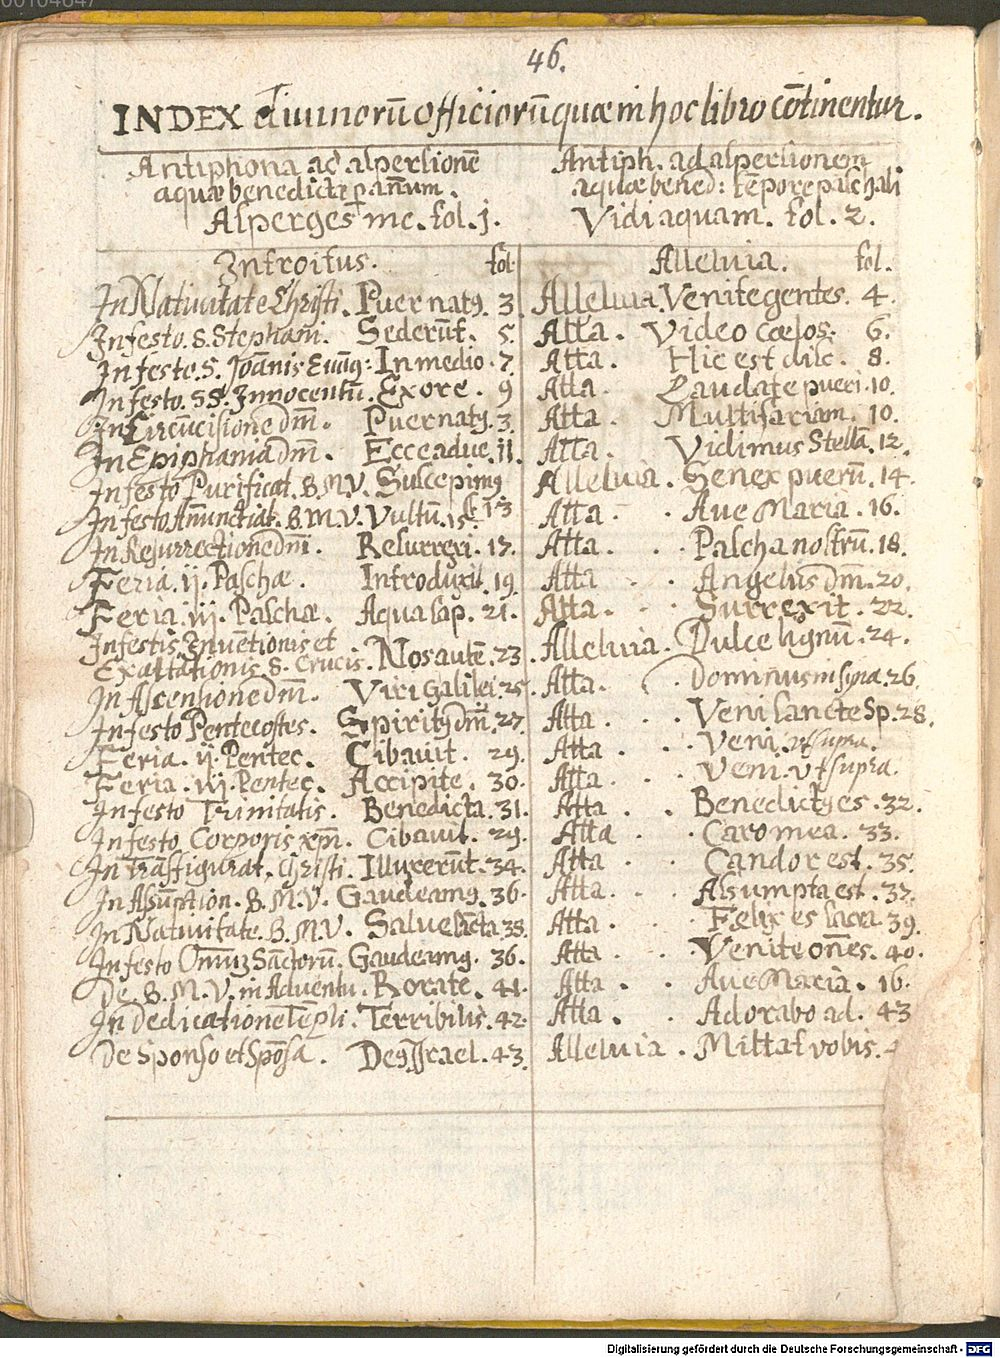 46.
INDEX diuinorũ officiorũ quæ in hoc libro cõtinentur.
Antiphona ad aspersionẽ
aquæ benedictæ p annum.
Asperges me. fol. j.
Antiph. ad aspersionem
aquæ bened: tẽpore paschali
Vidi aquam. fol. 2.
Introitus. fol. Alleluia. fol.
In Natiuitate Christi. Puer natꝰ. 3. Alleluia. Venite gentes. 4.
In festo. S. Stephani. Sederũt. 5. Alla. Video cœlos. 6.
In festo. S. Joãnis Euãg: In medio. 7 Alla. Hic est disc. 8.
In festo. SS. Innocentũ. Ex ore. 9 Alla. Laudate pueri. 10.
In Circũcisione dm̃. Puer natꝰ. 3. Alla. Multifariam. 10.
In Epiphania dm̃. Ecce adue. 11. Alla. Vidimus Stellã. 12.
In festo Purificat. B.M.V. Suscepimꝰ 13 Alleluia. Senex puerũ. 14.
In festo Añunctiat. B.M.V. Vultũ. 15. Alla. Aue Maria. 16.
In Resurrectione dm̃. Resurrexi. 17. Alla. Pascha nostrũ. 18.
Feria. ij. Paschæ. Introduxit. 19. Alla. Angelus dm̃. 20.
Feria. iij. Paschæ. Aqua sap. 21. Alla. Surrexit. 22.
In festis Inuẽtionis et
Exaltationis S. Crucis. Nos autẽ. 23 Alleluia. Dulce lignũ. 24.
In Ascensione dm̃. Viri Galilei. 25. Alla. Dominus in Syna. 26.
In festo Pentecostes. Spiritꝰ dm̃. 27. Alla. Veni sancte Sp. 28.
Feria. ij. Pentec. Cibauit. 29. Alla. Veni. vt supra.
Feria. iij. Pentec. Accipite. 30. Alla. Veni. vt supra.
In festo Trinitatis. Benedicta. 31. Alla. Benedictꝰ es. 32.
In festo Corporis xp̃i. Cibauit. 29. Alla. Caro mea. 33.
In Trãsfigurat. Christi. Illuxerũt. 34. Alla. Candor est. 35.
In Assũption. B.M.V. Gaudeamꝰ. 36. Alla. Assumpta est. 37.
In Natiuitate. B.M.V. Salue sc̃ta 38. Alla. Felix es sacra 39.
In festo Omniũ Sãctorũ. Gaudeamꝰ. 36. Alla. Venite om̃es. 40.
De B.M.V. in Aduentu. Rorate. 41. Alla. Aue Maria. 16.
In dedicatione Tẽpli. Terribilis. 42. Alla. Adorabo ad. 43
De Sponso et Spõsa. Deꝰ Israel. 43. Alleluia. Mittat vobis. 4
Digitalisierung gefördert durch die Deutsche Forschungsgemeinschaft - DFG